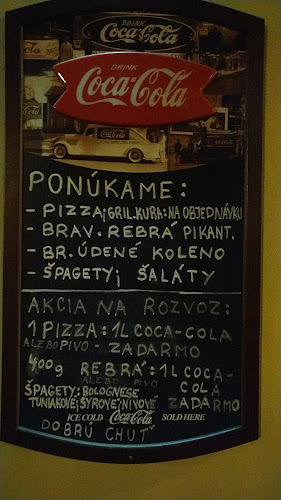 DRINK
Coca-Cola
DRINK
Coca-Cola
PONÚKAME:
- PIZZA; GRIL.KURA: NA OBJEDNÁVKU
- BRAV. REBRÁ PIKANT.
- BR. ÚDENÉ KOLENO
- ŠPAGETY; ŠALÁTY
AKCIA NA ROZVOZ:
1 PIZZA: 1L COCA-COLA
ALEBO PIVO - ZADARMO
400g REBRÁ: 1L COCA-
ALEBO PIVO COLA
ŠPAGETY: BOLOGNESE
TUNIAKOVÉ; SYROVÉ; NIVOVÉ ZADARMO
ICE COLD Coca-Cola SOLD HERE
DOBRÚ CHUŤ